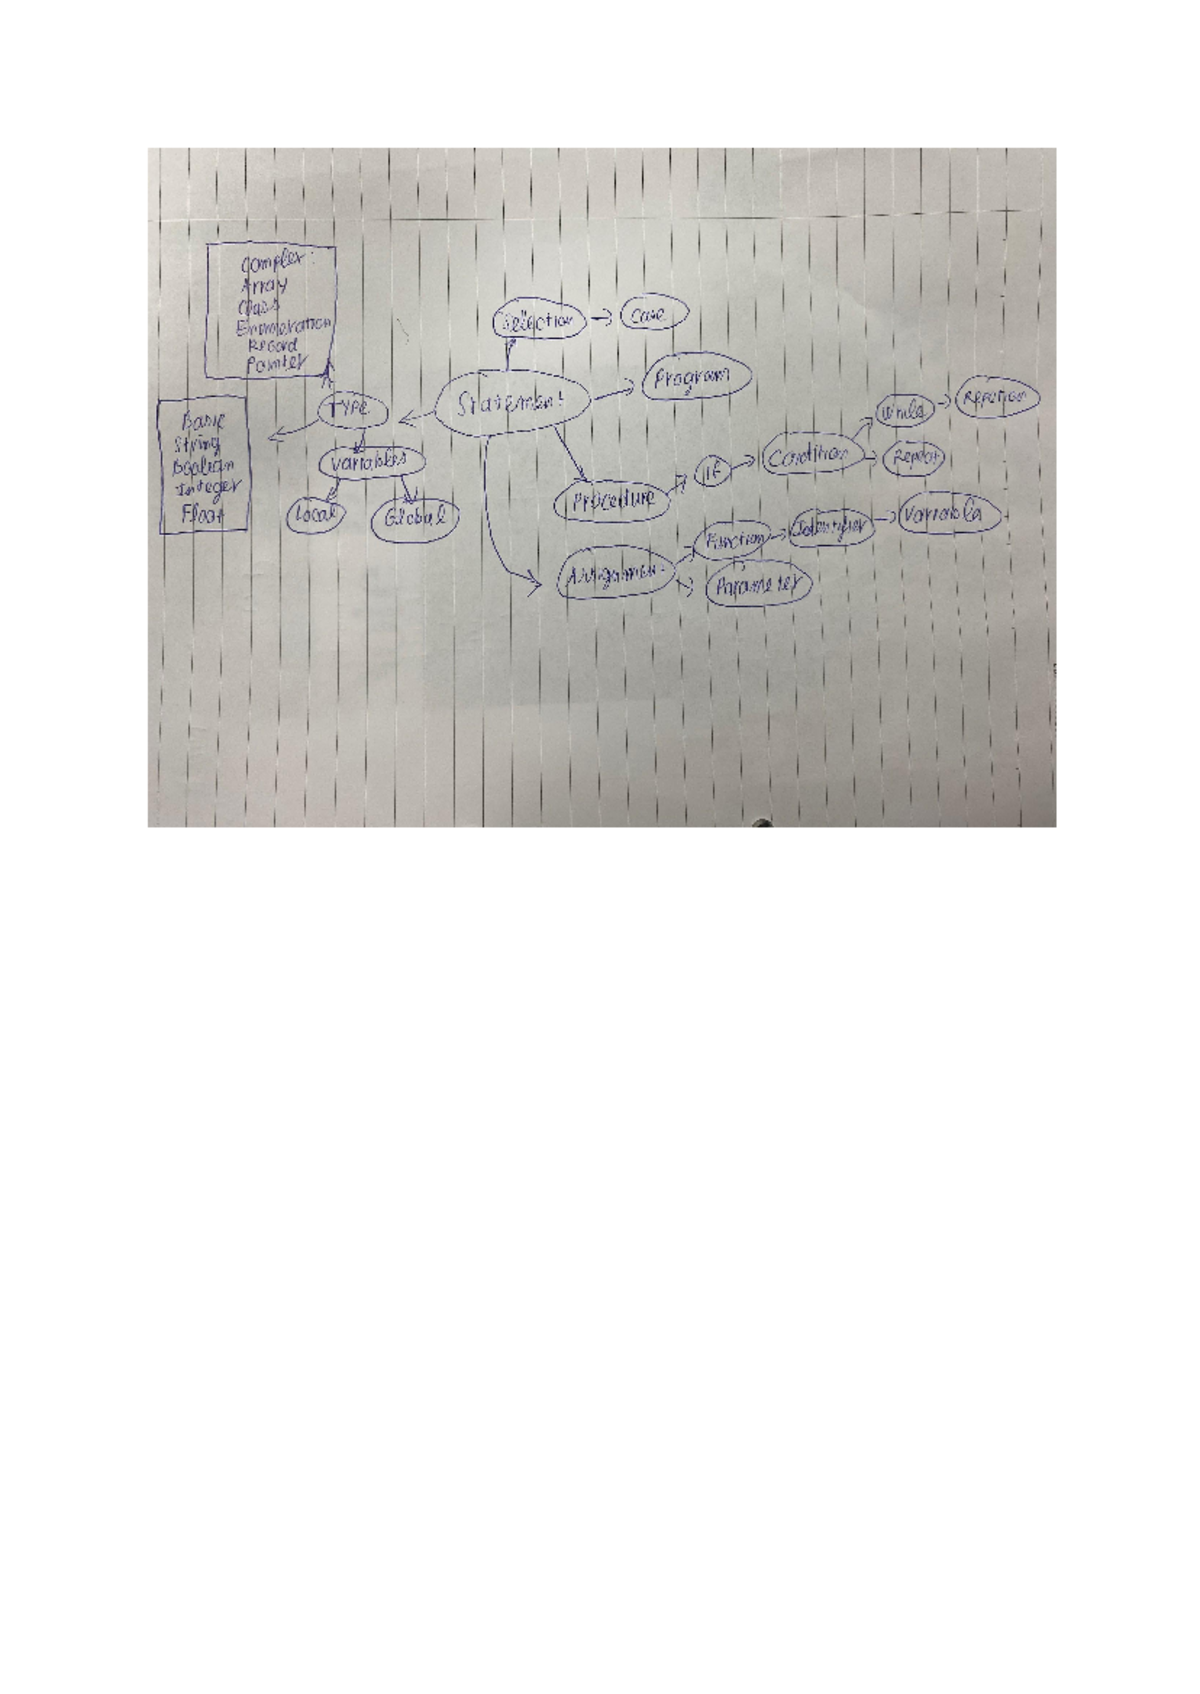 Complex:
Array
Class
Enumeration
Record
Pointer
Selection
Case
Statement
Program
TYPE
Basic
String
Boolean
Integer
Float
Variables
Local
Global
Procedure
IF
Condition
While
Repetion
Repeat
Assignmen
Function
Identifier
Variable
Parameter